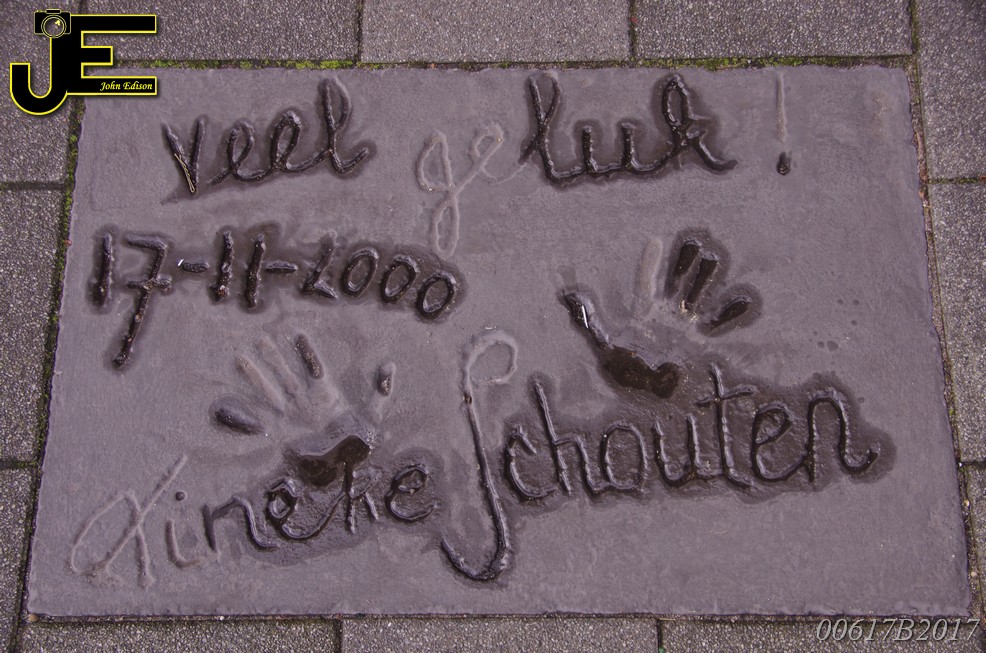 JE
John Edison
veel geluk!
17-11-2000
Tineke Schouten
00617B2017